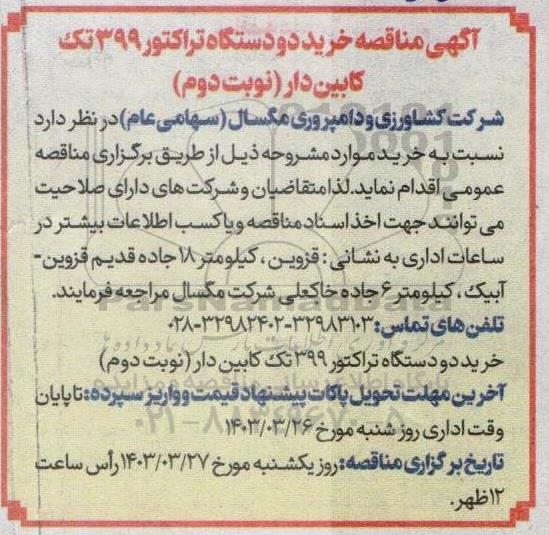 آگهی مناقصه خرید دو دستگاه تراکتور ۳۹۹ تک
کابین دار (نوبت دوم)
شرکت کشاورزی و دامپروری مگسال (سهامی عام) در نظر دارد
نسبت به خرید موارد مشروحه ذیل از طریق برگزاری مناقصه
عمومی اقدام نماید. لذا متقاضیان و شرکت های دارای صلاحیت
می توانند جهت اخذ اسناد مناقصه و یا کسب اطلاعات بیشتر در
ساعات اداری به نشانی: قزوین، کیلومتر ۱۸ جاده قدیم قزوین-
آبیک، کیلومتر ۶ جاده خاکعلی شرکت مگسال مراجعه فرمایند.
تلفن های تماس: ۳۲۹۸۳۱۰۳-۳۲۹۸۲۴۰۲-۰۲۸
خرید دو دستگاه تراکتور ۳۹۹ تک کابین دار (نوبت دوم)
آخرین مهلت تحویل پاکات پیشنهاد قیمت و واریز سپرده: تا پایان
وقت اداری روز شنبه مورخ ۱۴۰۳/۰۳/۲۶
تاریخ برگزاری مناقصه: روز یکشنبه مورخ ۱۴۰۳/۰۳/۲۷ رأس ساعت
۱۲ ظهر.